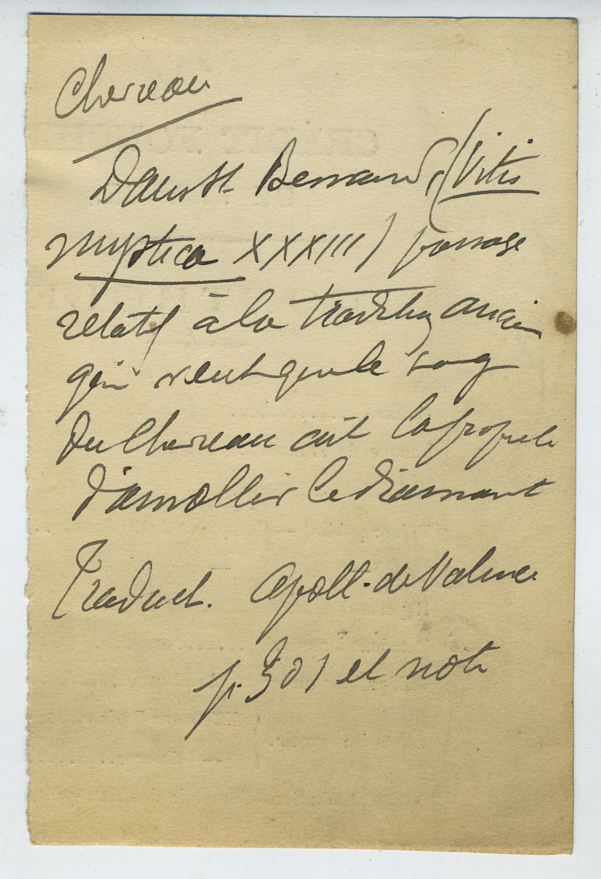 Chevreau
Dans St Bernard, (Vitis
mystica XXXIII) passage
relatif à la tradition ancien
qui veut que le sang
du Chevreau ait la propriété
d'amollir le diamant
Traduct. Apoll. de Valence
p. 301 et note